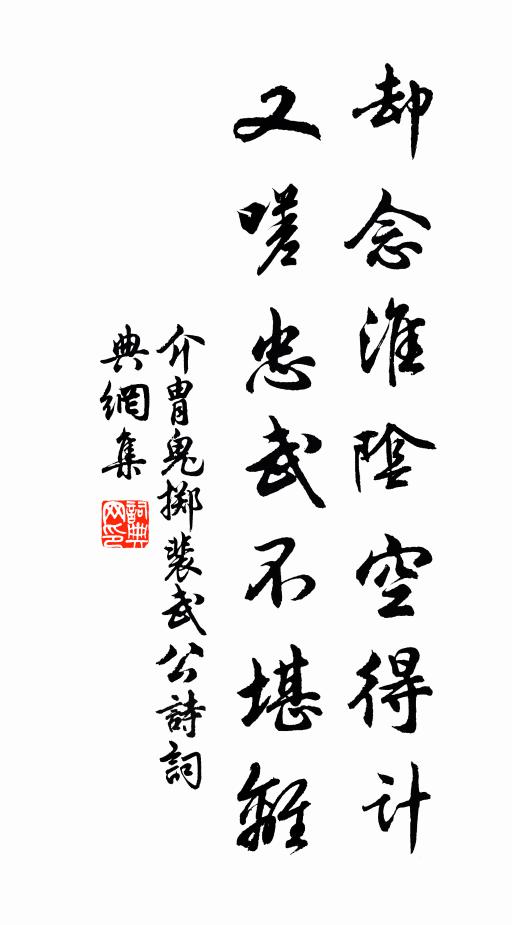 却念淮陰空得計
又嗟忠武不堪離
介胄鬼擲裴武公詩詞
典網集
詞典网印